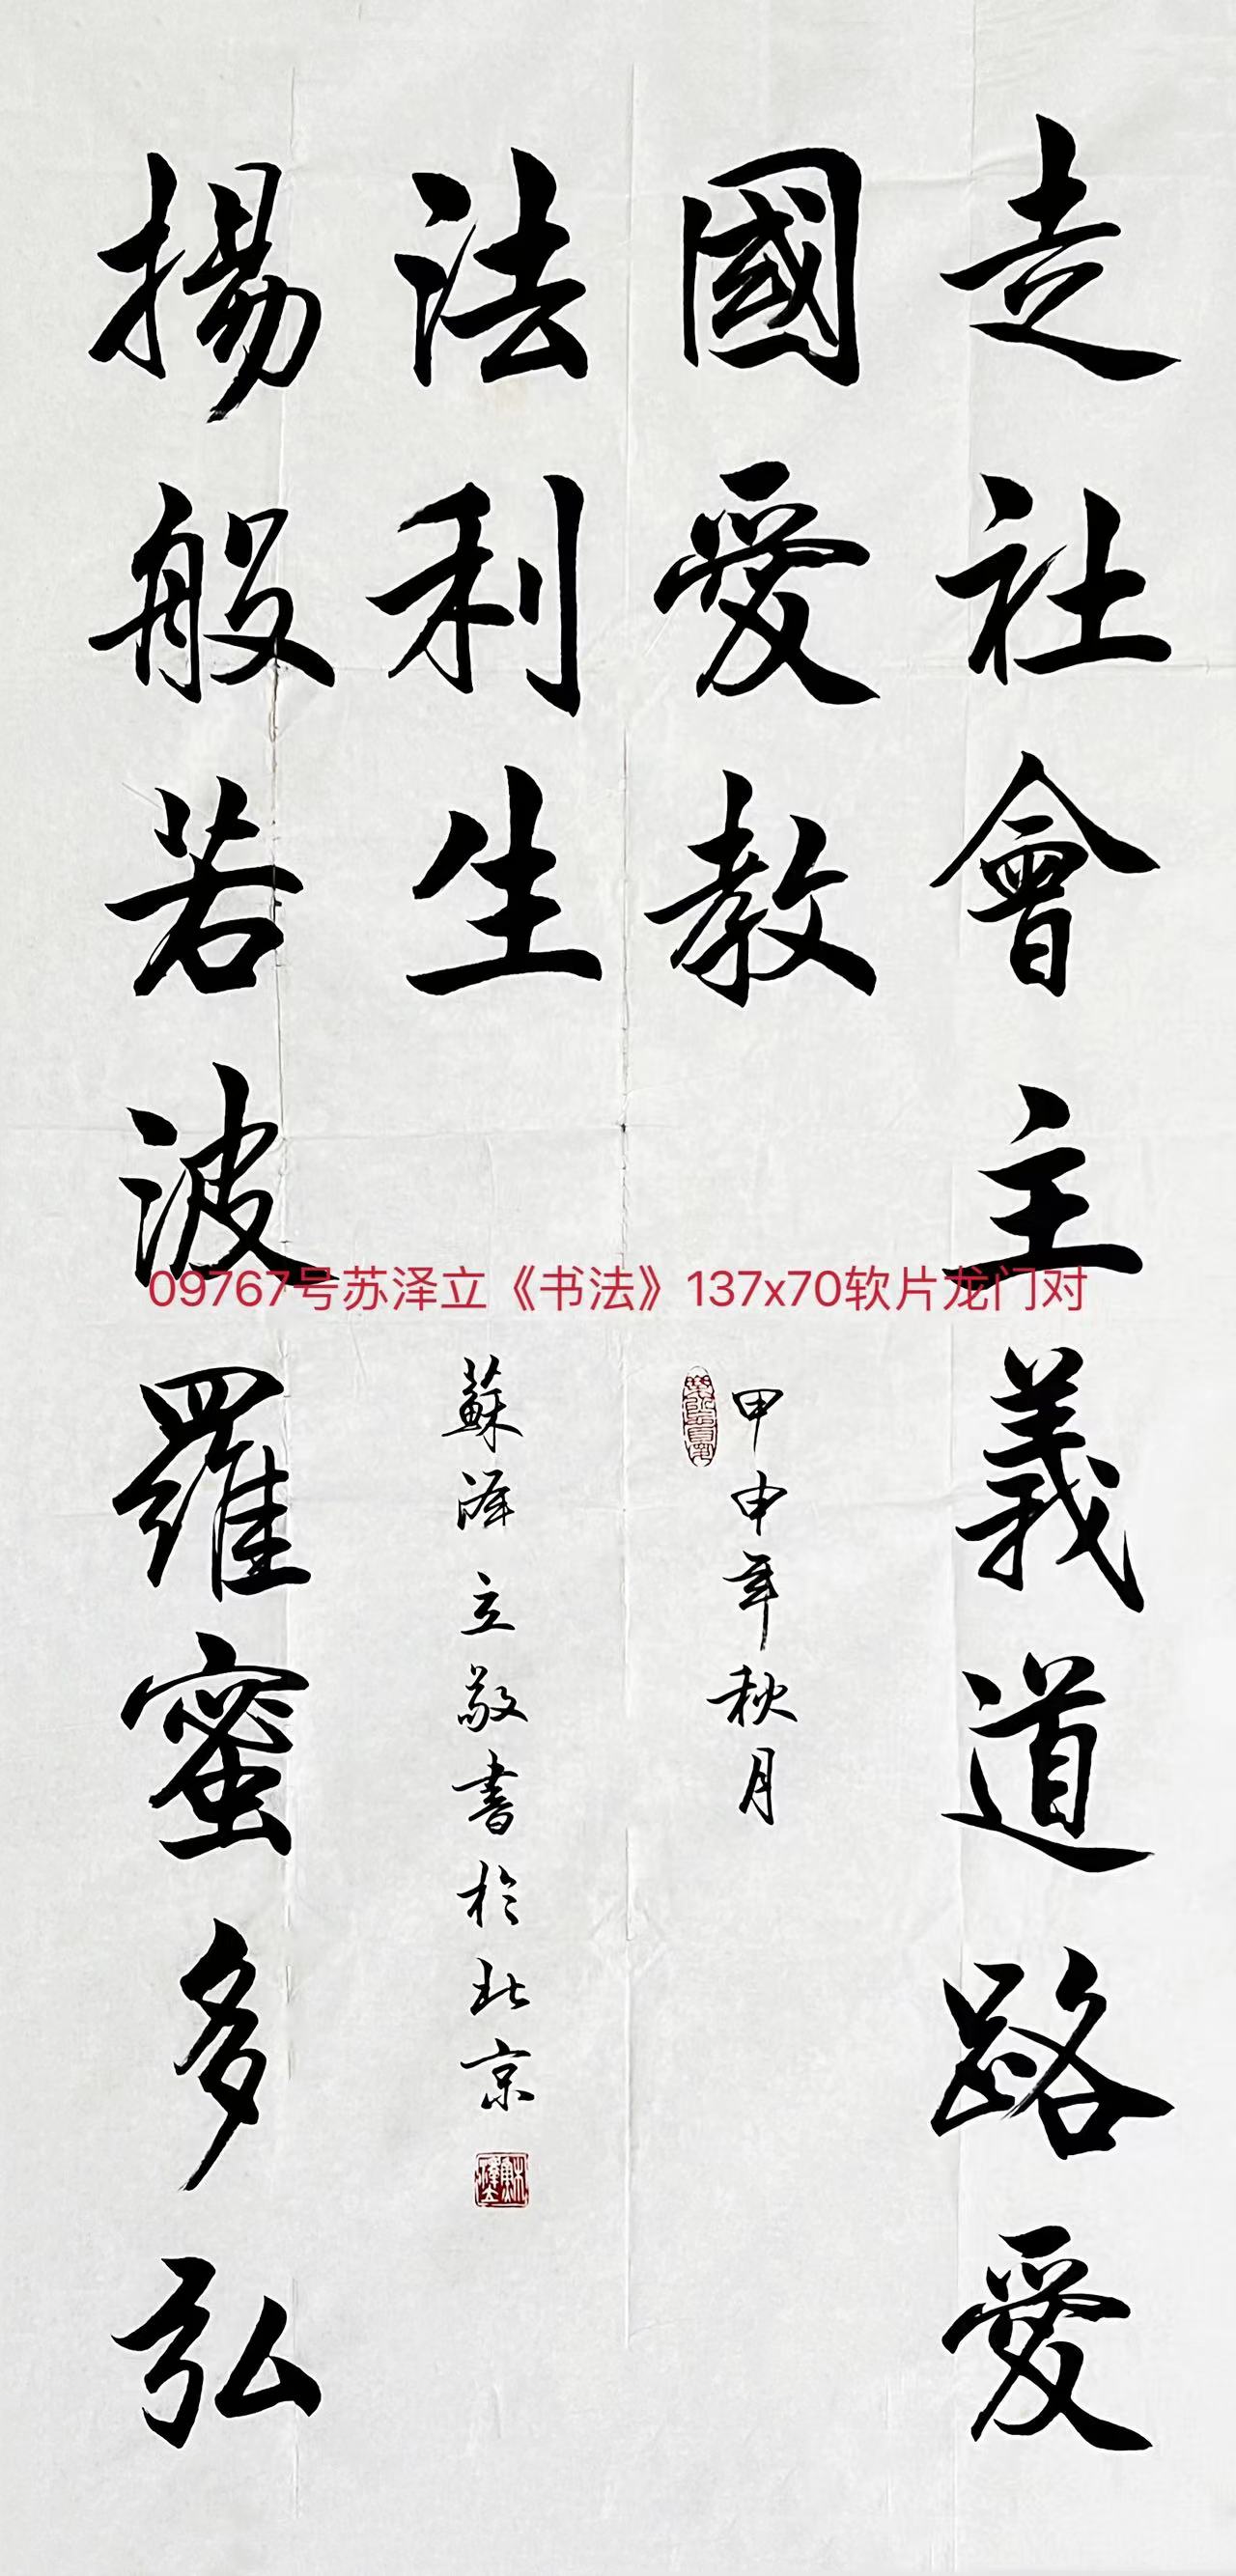 走社會主義道路愛
國愛教
甲申年秋月
揚般若波羅蜜多弘
法利生
蘇泽立敬書於北京
09767号苏泽立《书法》137x70软片龙门对